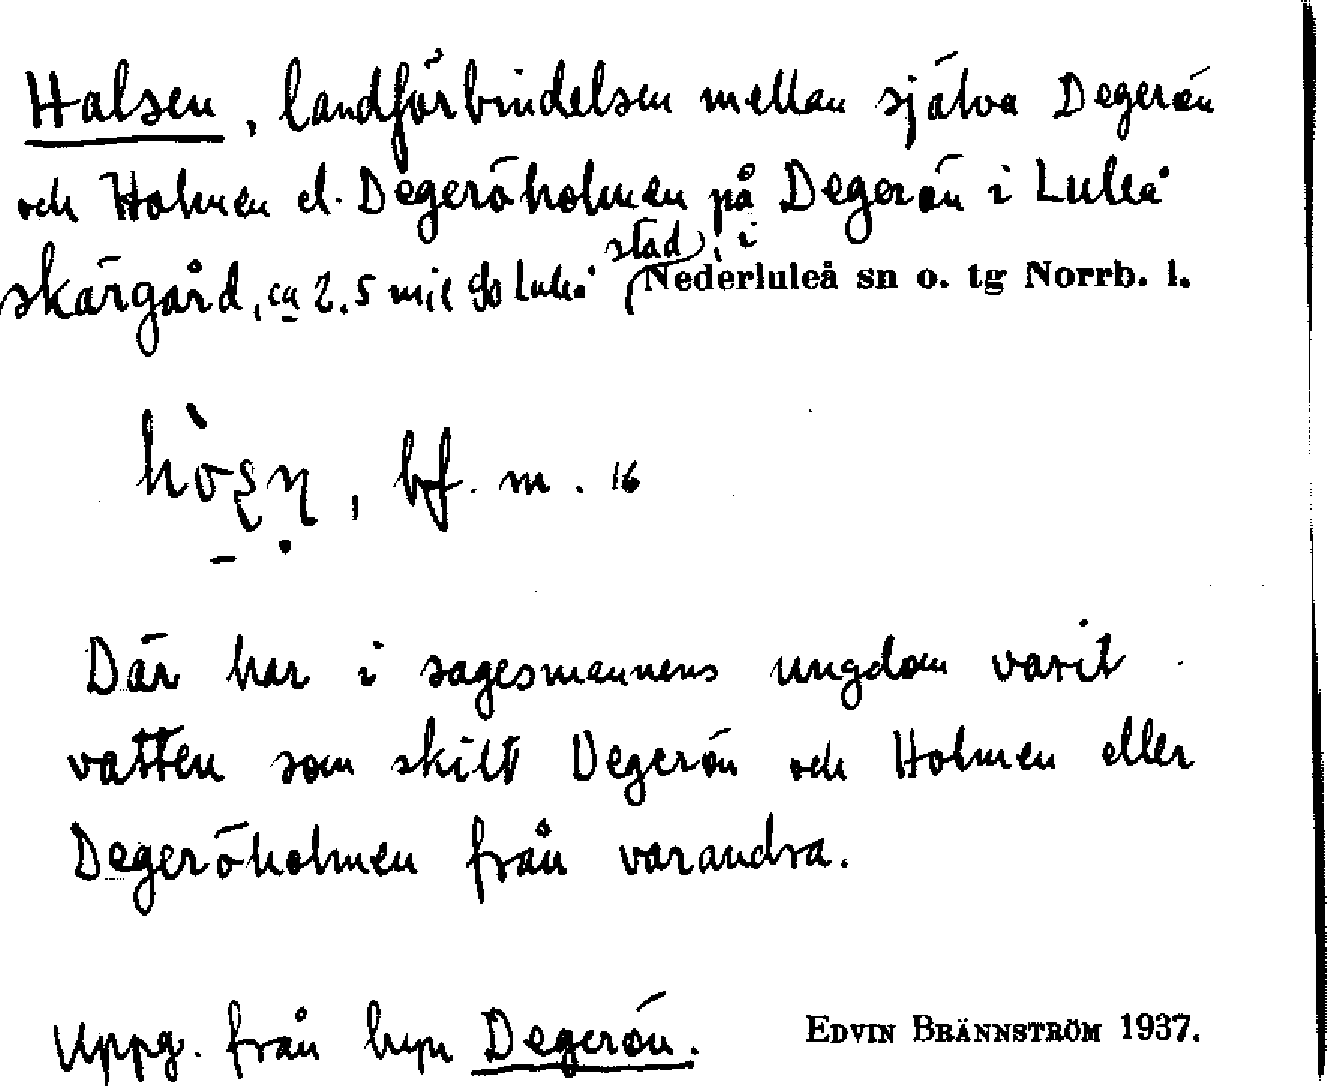 Halsen, landförbindelsen mellan själva Degerön
och Holmen el. Degeröholmen på Degerön i Luleå
stad, i
skärgård, ca 2.5 mil so Luleå Nederluleå sn o. tg Norrb. l.
bf. m. 16
Där har i sagesmannens ungdom varit
vatten som skilt Degerön och Holmen eller
Degeröholmen från varandra.
Uppg. från byn Degerön. EDVIN BRÄNNSTRÖM 1937.